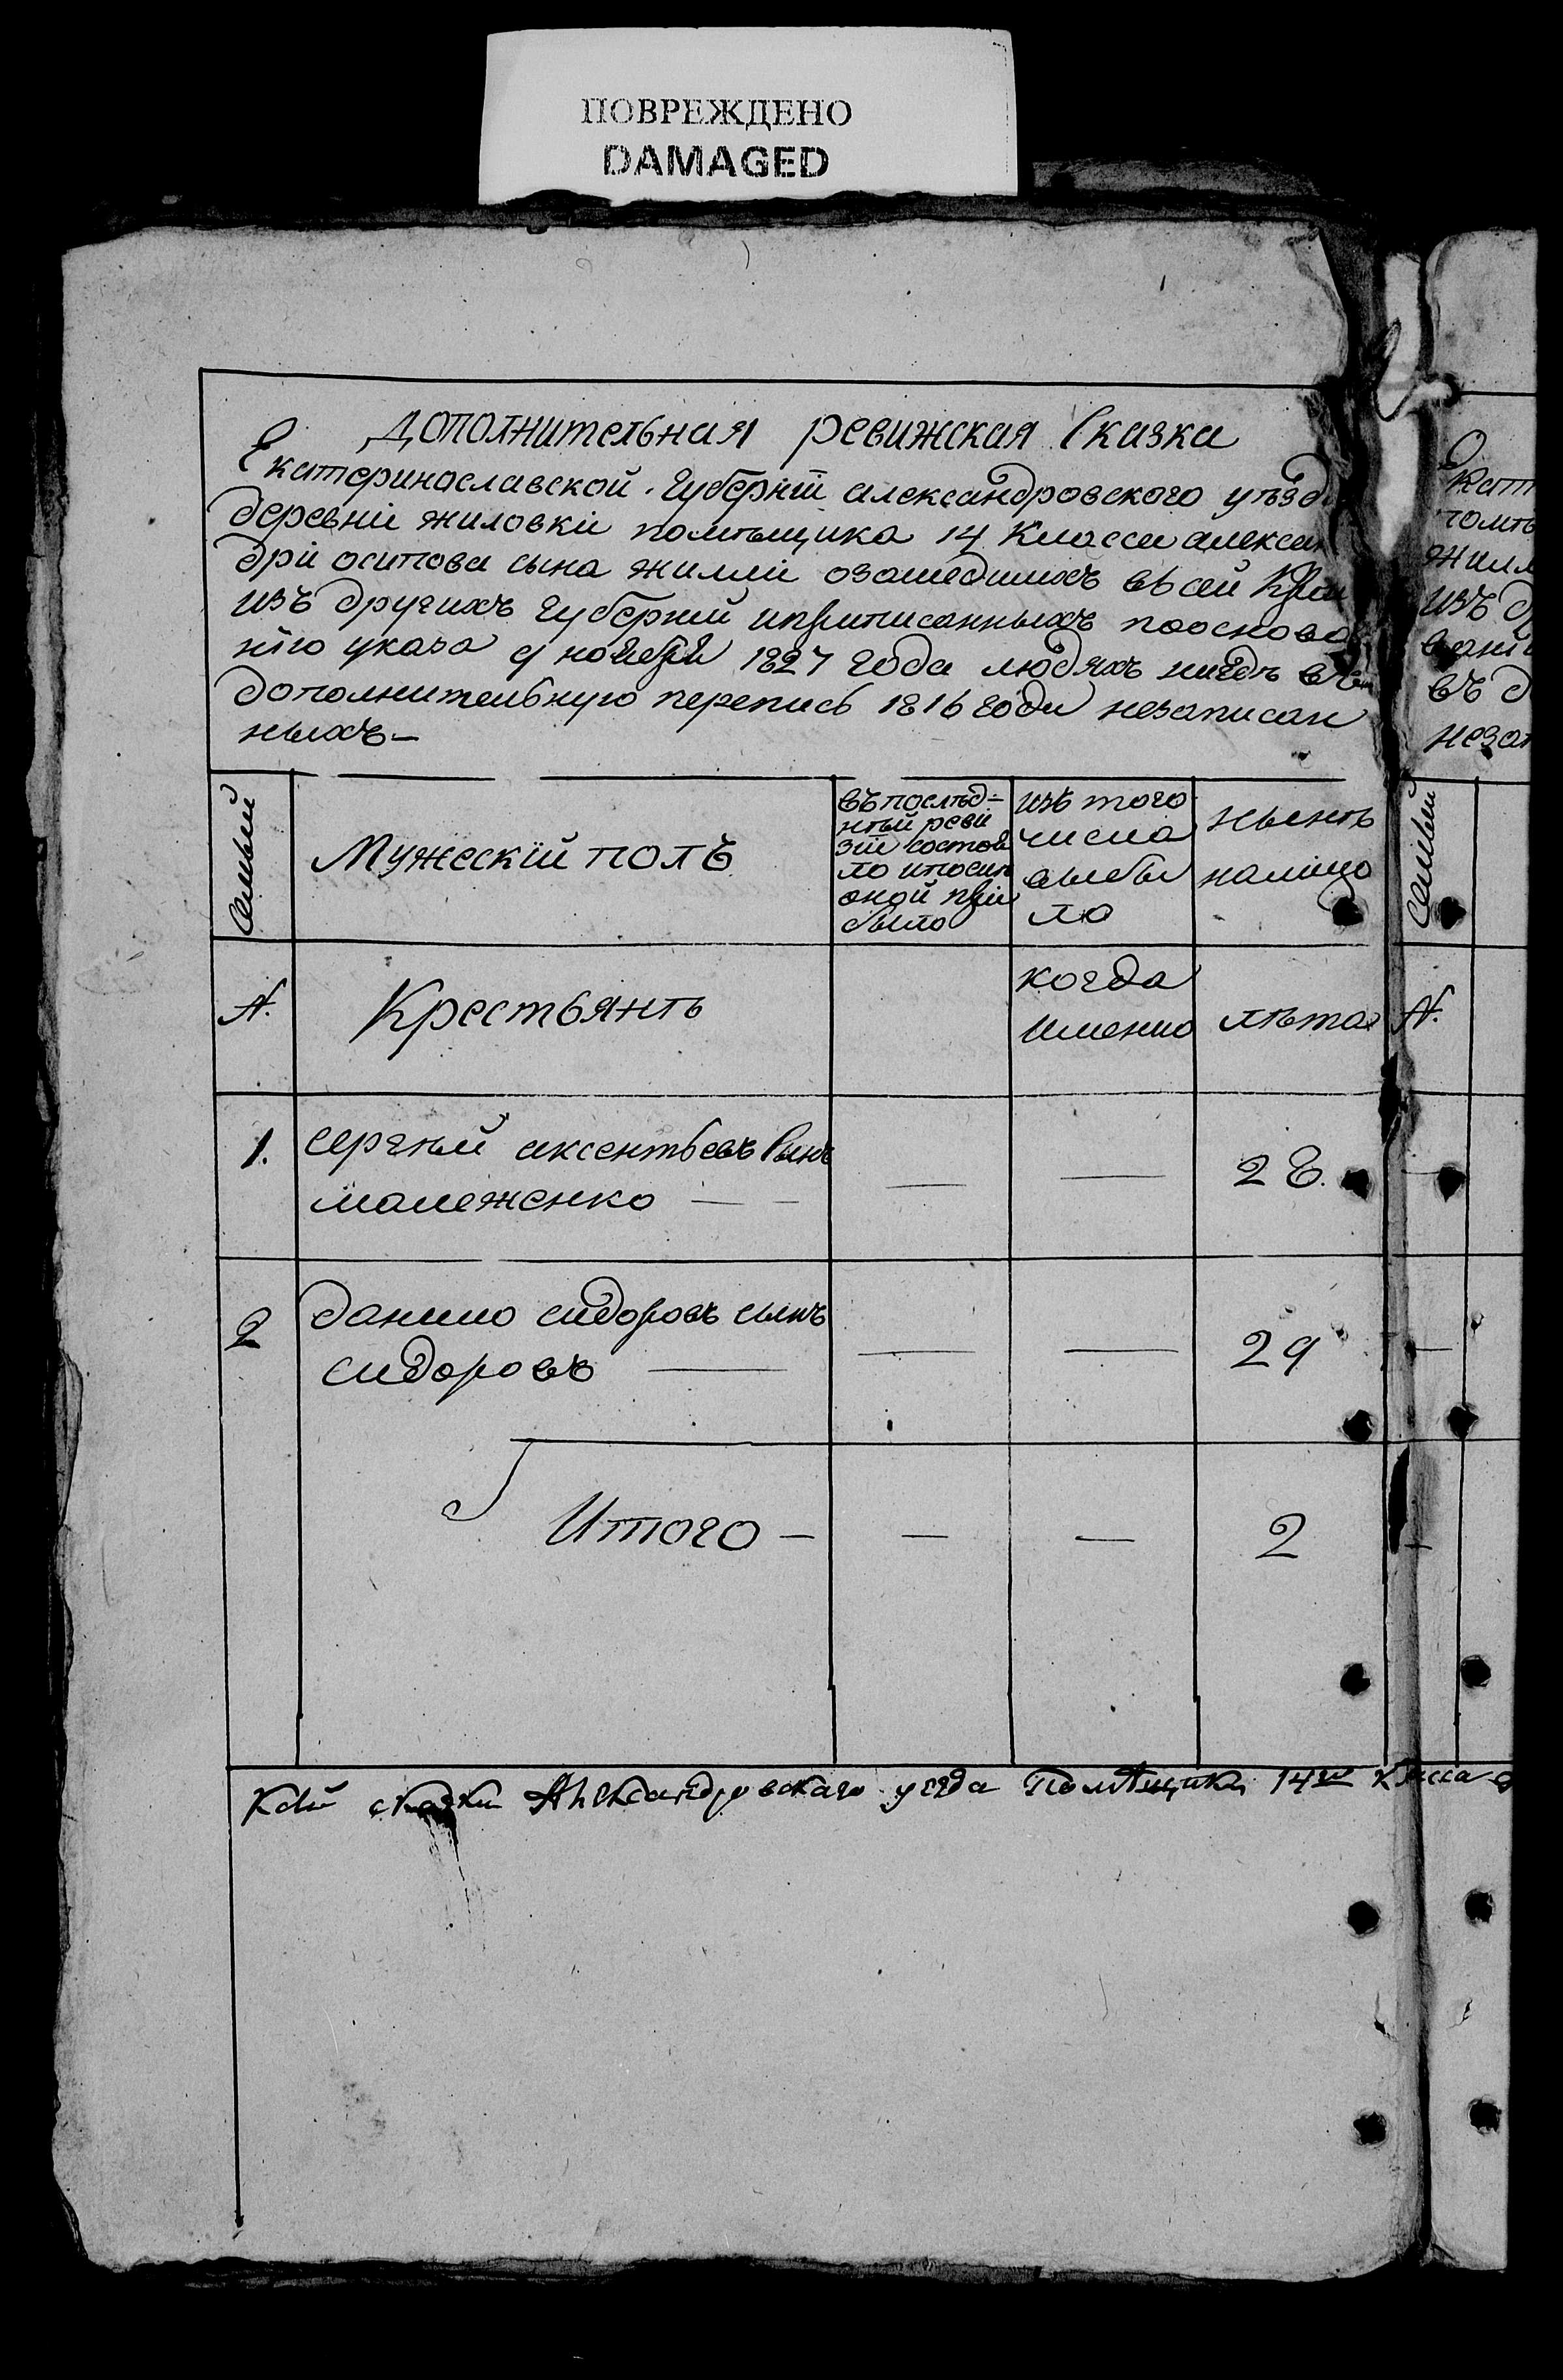 ПОВРЕЖДЕНО
DAMAGED
Дополнительная ревижская Сказка
Екатеринославской Губернїи александровского уѣзда
деревнїи жиловкїи помѣщика 14 Класса алексан
дрї осипова сына жиллї озашедшихъ въсей край
изъ другихъ Губернїй иприписанныхъ пооснова
нїю указа 9 ноября 1827 года людяхъ нигдѣ въ
дополнительную перепись 1816 года незаписан
ныхъ—
Семьи
Мужескїй полъ
въпослѣд=
нѣй реви
зїи состоя
ло ипосли
оной при
было
изъ того
числа
выбы
ло
нынѣ
налицо
№.
Крестьянѣ
когда
имѣнно
лѣта
1.
сергѣй аксентьевъ Сынъ
малеженко — —
—
—
28.
2
данило сидоровъ сынъ
сидоровъ —
—
—
29
Итого —
—
—
2
Ксїй сказки Александровскаго уезда Помѣщика 14го класса
Екат
помѣ
жилл
изъ д
въ д
незап
Семьи
№.